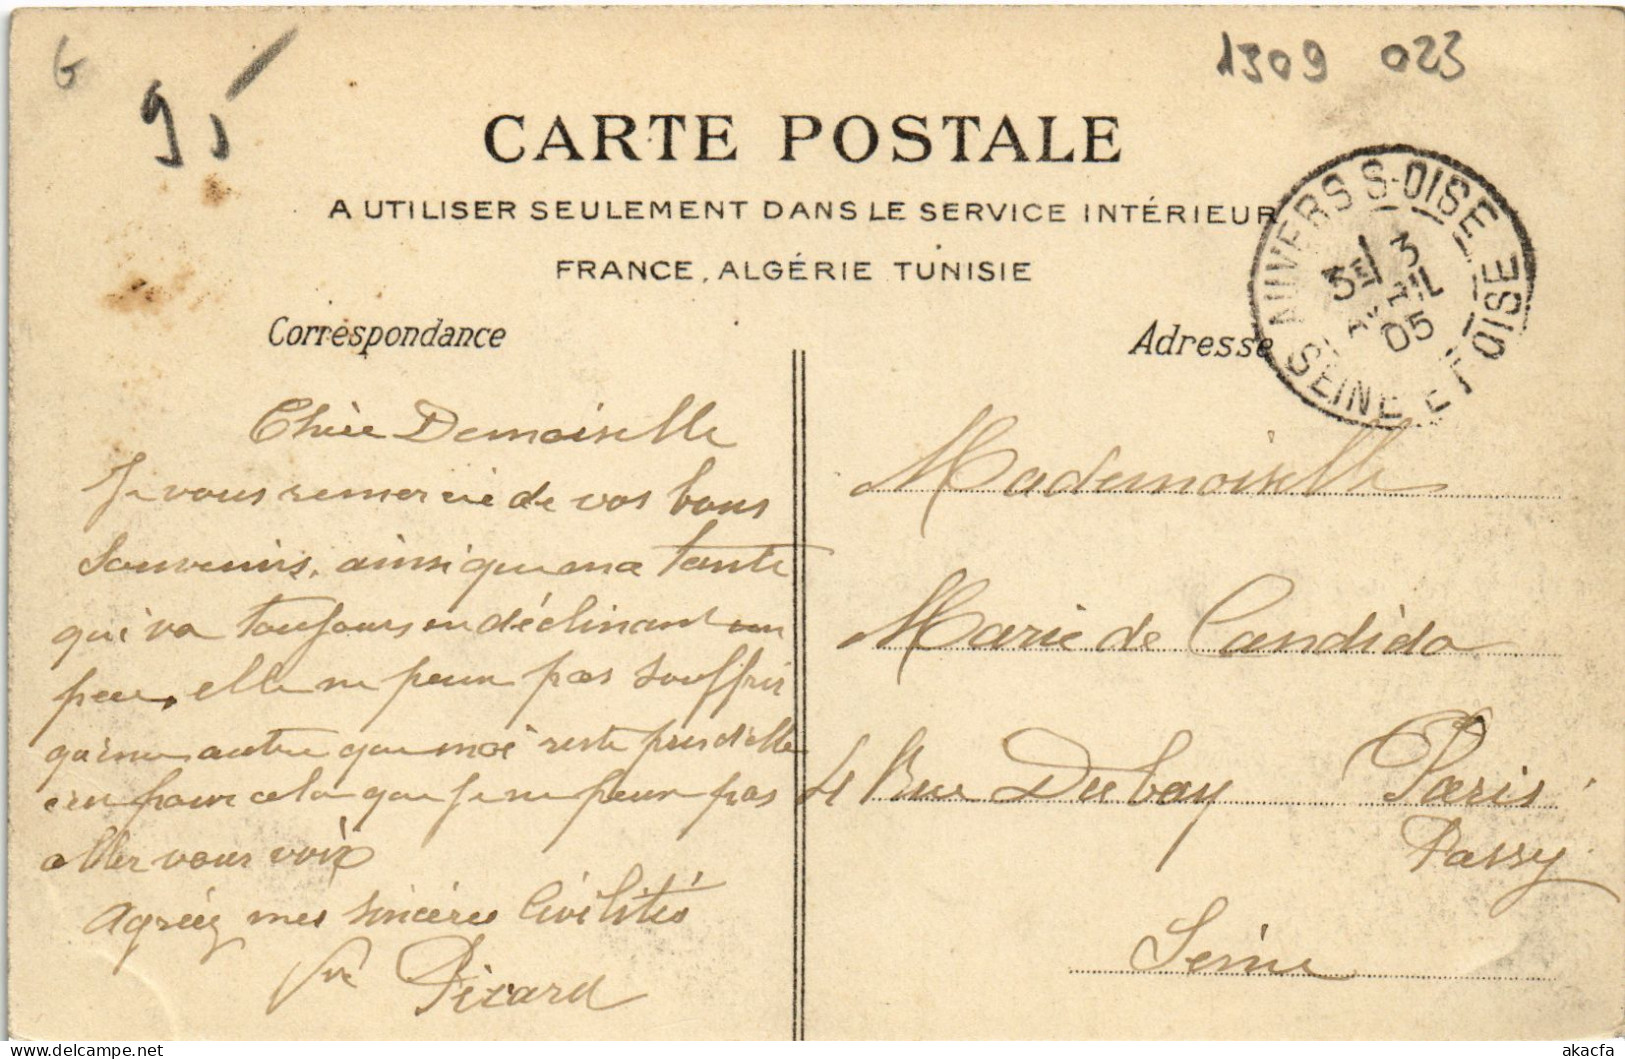 G
95
1309 023
CARTE POSTALE
A UTILISER SEULEMENT DANS LE SERVICE INTÉRIEUR
FRANCE, ALGÉRIE TUNISIE
AUVERS S-OISE
SEINE ET OISE
3
05
Correspondance
Adresse
Chère Demoiselle
Je vous remercie de vos bons
Souvenirs, ainsi que ma tante
qui va toujours en déclinant un
peu, elle ne peux pas souffrir
qu'une autre que moi reste près d'elle
pour cela que je ne peux pas
aller vous voir
agréez mes sincères Civilités
Vve Picard
Mademoiselle
Marie de Candido
4 Rue Duban Paris
Passy
Seine
akacfa